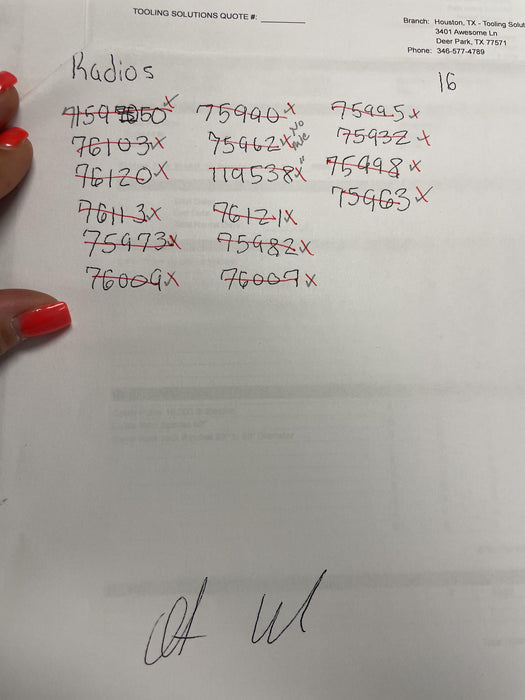 TOOLING SOLUTIONS QUOTE #:
Branch: Houston, TX - Tooling Solut
3401 Awesome Ln
Deer Park, TX 77571
Phone: 346-577-4789
Radios
16
75990 x 75995 x
76103 x 75962 x No 75932 x
76120 x 119538 x " 75998 x
76113 x 76121 x 75963 x
75973 x 75982 x
76009 x 76007 x